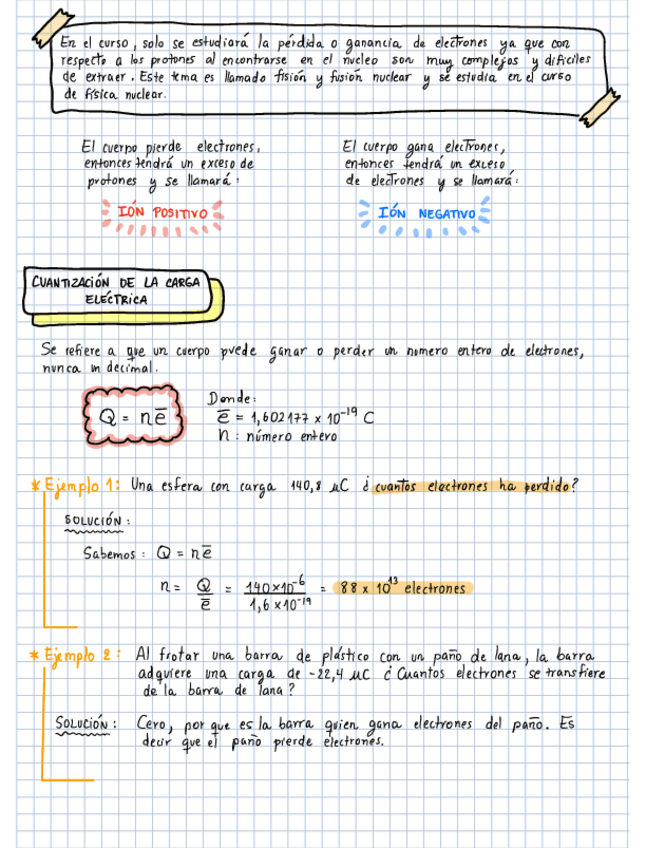 En el curso, solo se estudiará la pérdida o ganancia de electrones ya que con
respecto a los protones al encontrarse en el núcleo son muy complejos y dificiles
de extraer. Este tema es llamado fisión y fusión nuclear y se estudia en el curso
de física nuclear.
El cuerpo pierde electrones,
entonces tendrá un exceso de
protones y se llamará:
IÓN POSITIVO
El cuerpo gana electrones,
entonces tendrá un exceso
de electrones y se llamará:
IÓN NEGATIVO
CUANTIZACIÓN DE LA CARGA
ELÉCTRICA
Se refiere a que un cuerpo puede ganar o perder un numero entero de electrones,
nunca un decimal.
Q = nē
Donde:
ē = 1,602177 x 10⁻¹⁹ C
n : número entero
* Ejemplo 1: Una esfera con carga 140,8 μC ¿ cuantos electrones ha perdido?
SOLUCIÓN:
Sabemos : Q = nē
n = Q/ē = 140x10⁻⁶/1,6x10⁻¹⁹ = 88 x 10¹³ electrones
* Ejemplo 2: Al frotar una barra de plástico con un paño de lana, la barra
adquiere una carga de -22,4 μC ¿ Cuantos electrones se transfiere
de la barra de lana?
SOLUCIÓN: Cero, por que es la barra quien gana electrones del paño. Es
decir que el paño pierde electrones.